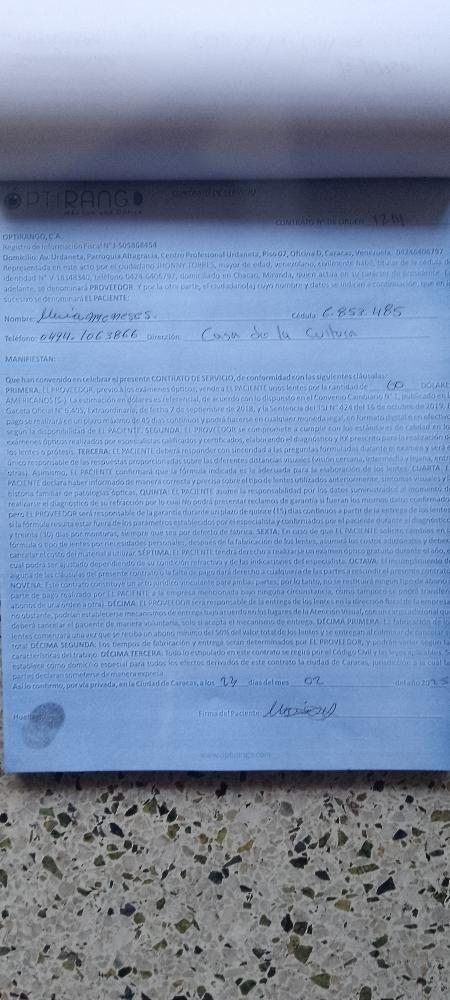 OPTIRANGO
CONTRATO DE SERVICIO
CONTRATO N° DE ORDEN
OPTIRANGO, C.A.
Registro de Información Fiscal N° J-505868454
Domicilio: Av. Urdaneta, Parroquia Altagracia, Centro Profesional Urdaneta, Piso 07, Oficina D, Caracas, Venezuela. 04246406797
Representada en este acto por el ciudadano JHONNY TORRES, mayor de edad, venezolano, civilmente hábil, titular de la cédula de
identidad N° V 18148340, teléfono 0424-6406797, domiciliado en Chacao, Miranda, quien actúa en su carácter de presidente. En
adelante, se denominará PROVEEDOR. Y por la otra parte, el ciudadano(a) cuyo nombre y datos se indican a continuación, que en lo
sucesivo se denominará EL PACIENTE:
Nombre: meneses. Cédula: 6.853.485
Teléfono: 0414.1063866 Dirección: Casa de la Cultura
MANIFIESTAN:
Que han convenido en celebrar el presente CONTRATO DE SERVICIO, de conformidad con las siguientes cláusulas:
PRIMERA: EL PROVEEDOR, previo a los exámenes ópticos, vende a EL PACIENTE unos lentes por la cantidad de 60 DÓLARES
AMERICANOS ($.) La estimación en dólares es referencial, de acuerdo con lo dispuesto en el Convenio Cambiario N° 1, publicado en
Gaceta Oficial N° 6.405, Extraordinaria, de fecha 7 de septiembre de 2018, y la Sentencia del TSJ N° 424 del 16 de octubre de 2019. El
pago se realizará en un plazo máximo de 45 días continuos y podrá hacerse en cualquier moneda legal, en formato digital o en efectivo,
según la disponibilidad de EL PACIENTE. SEGUNDA: EL PROVEEDOR se compromete a cumplir con los estándares de calidad en los
exámenes ópticos realizados por especialistas calificados y certificados, elaborando el diagnóstico y RX prescrito para la realización de
los lentes o prótesis. TERCERA: EL PACIENTE deberá responder con sinceridad a las preguntas formuladas durante el examen y será el
único responsable de las respuestas proporcionadas sobre las diferentes distancias visuales (visión cercana, intermedia y lejana, entre
otras). Asimismo, EL PACIENTE confirmará que la fórmula indicada es la adecuada para la elaboración de los lentes. CUARTA:
PACIENTE declara haber informado de manera correcta y precisa sobre el tipo de lentes utilizados anteriormente, síntomas visuales y la
historia familiar de patologías ópticas. QUINTA: EL PACIENTE asume la responsabilidad por los datos suministrados al momento de
realizarse el diagnóstico de su refracción por lo cual No podrá presentar reclamos de garantía si fueran los mismos datos confirmados
pero EL PROVEEDOR será responsable de la garantía durante un plazo de quince (15) días continuos a partir de la entrega de los lentes
si la fórmula resulta estar fuera de los parámetros establecidos por el especialista y confirmados por el paciente durante el diagnóstico
y treinta (30) días por monturas, siempre que sea por defecto de fábrica. SEXTA: En caso de que EL PACIENTE solicite cambios en
fórmula o tipo de lentes por necesidades personales, después de la fabricación de los lentes, asumirá los costos adicionales y deberá
cancelar el costo del material a utilizar. SÉPTIMA: EL PACIENTE tendrá derecho a realizarse un examen óptico gratuito durante el año,
cual podrá ser ajustado dependiendo de su condición refractiva y de las indicaciones del especialista. OCTAVA: El incumplimiento de
alguna de las cláusulas del presente contrato o la falta de pago dará derecho a cualquiera de las partes a rescindir el presente contrato.
NOVENA: Este contrato constituye un acto jurídico vinculante para ambas partes; por lo tanto, no se restituirá ningún tipo de abono
parte de pago realizado por EL PACIENTE a la empresa mencionada bajo ninguna circunstancia, como tampoco se podrá transferir
abonos de una orden a otra. DÉCIMA: EL PROVEEDOR será responsable de la entrega de los lentes en la dirección fiscal de la empresa
no obstante, podrán establecerse mecanismos de entrega bajo acuerdo en los lugares de la Atención Visual, con un cargo adicional que
deberá cancelar el paciente de manera voluntaria, solo si acepta el mecanismo de entrega. DÉCIMA PRIMERA: La fabricación de
lentes comenzará una vez que se reciba un abono mínimo del 50% del valor total de los lentes y se entregan al
total. DÉCIMA SEGUNDA: Los tiempos de fabricación y entrega serán determinados por EL PROVEEDOR, y podrán variar según las
características del trabajo. DÉCIMA TERCERA: Todo lo estipulado en este contrato se regirá por el Código Civil y las leyes aplicables. Se
establece como domicilio especial para todos los efectos derivados de este contrato la ciudad de Caracas, jurisdicción a la cual las
partes declaran someterse de manera expresa.
Así lo confirmo, por vía privada, en la Ciudad de Caracas, a los 24 días del mes 02 del año 2025
Huella: Firma del Paciente:
www.optirango.com